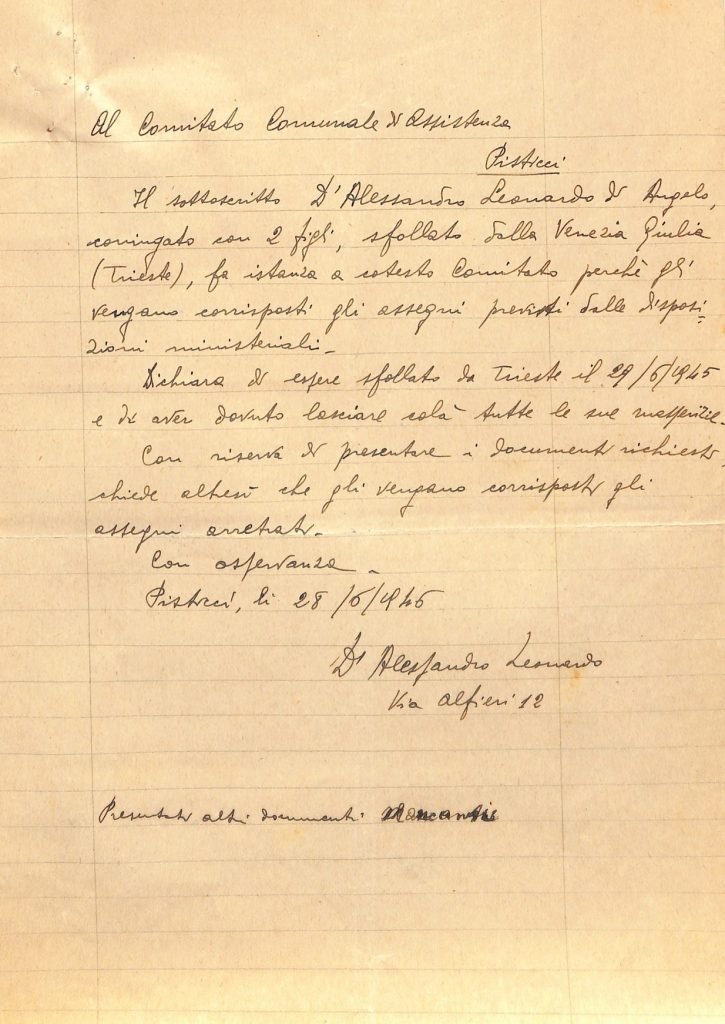 Al Comitato Comunale di Assistenza
Pisticci
Il sottoscritto D'Alessandro Leonardo di Angelo,
coniugato con 2 figli, sfollato dalla Venezia Giulia
(Trieste), fa istanza a cotesto Comitato perchè gli
vengano corrisposti gli assegni previsti dalle disposi-
zioni ministeriali.
Dichiara di essere sfollato da Trieste il
e di aver dovuto lasciare colà tutte le sue masserizie.
Con riserva di presentare i documenti richiesti
chiede altresì che gli vengano corrisposti gli
assegni arretrati.
Con osservanza.
Pisticci, li
D'Alessandro Leonardo
Via Alfieri 12
Presentati altri documenti mancanti